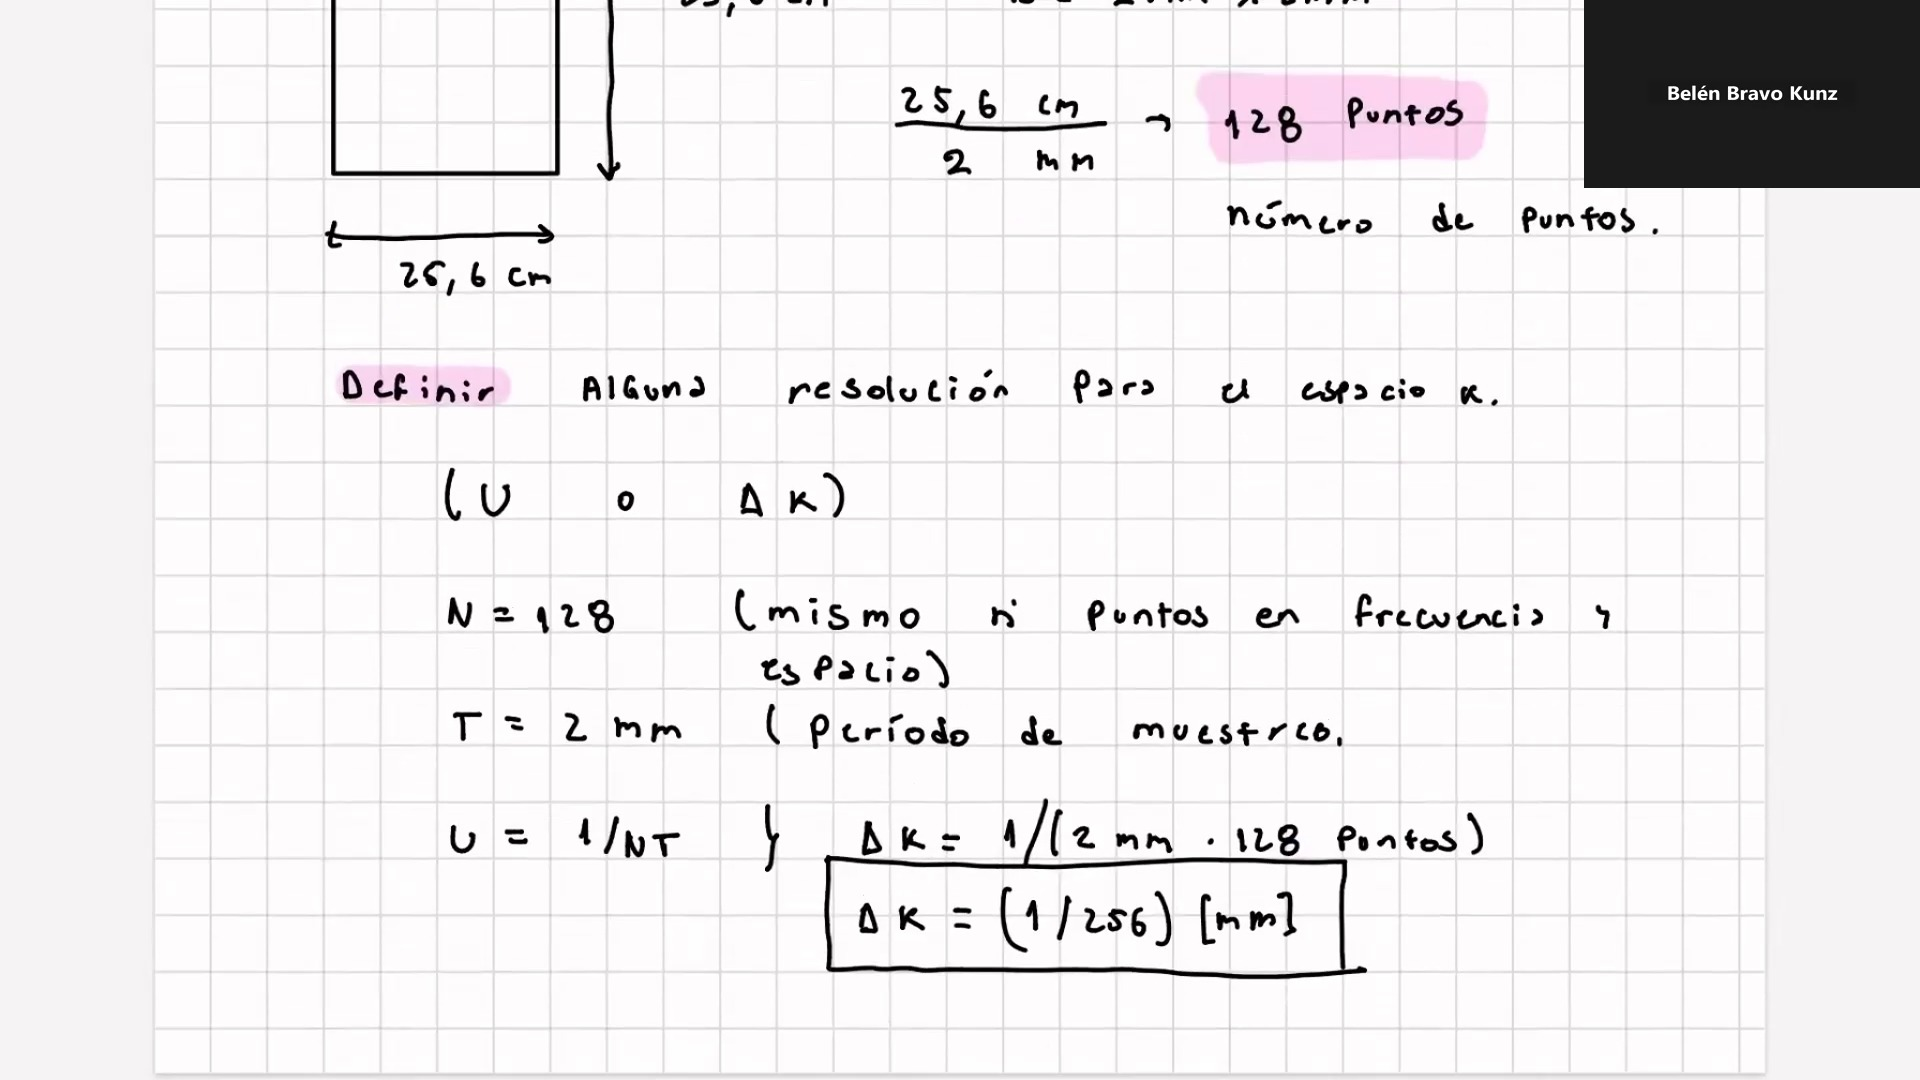 Belén Bravo Kunz
25,6 cm
2 mm
→ 128 Puntos
número de puntos.
25,6 cm
Definir Alguna resolución para el espacio K.
(U o Δ K)
N = 128 (mismo n° puntos en frecuencia y
espacio)
T = 2 mm (Período de muestreo.
U = 1/NT } Δ K = 1/(2 mm · 128 Puntos)
Δ K = (1/256) [mm]